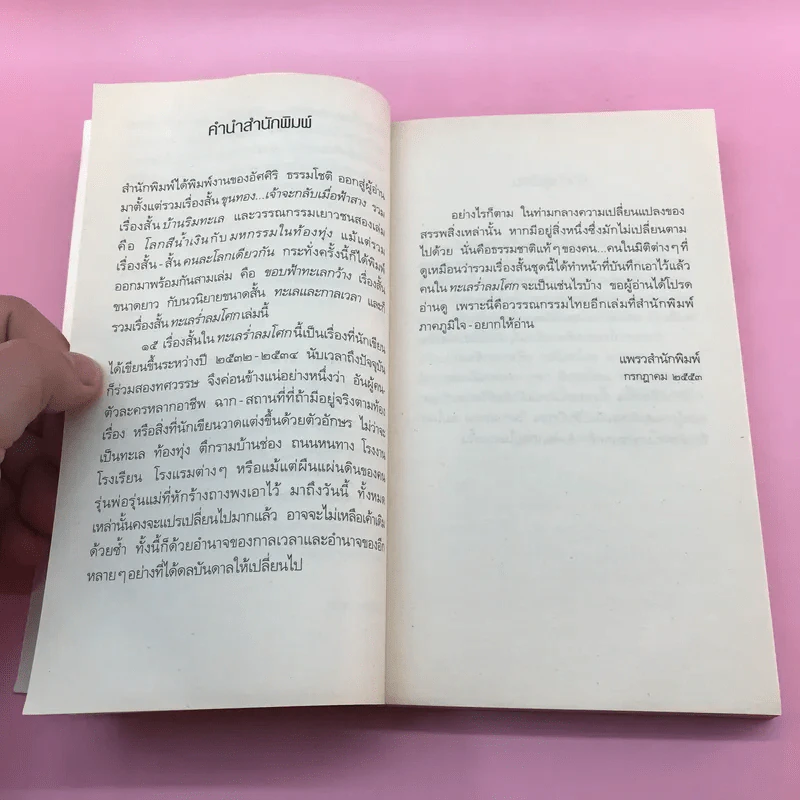 คำนำสำนักพิมพ์
สำนักพิมพ์ได้พิมพ์งานของอัศศิริ ธรรมโชติ ออกสู่ผู้อ่าน
มาตั้งแต่รวมเรื่องสั้น ขุนทอง...เจ้าจะกลับเมื่อฟ้าสาง รวม
เรื่องสั้น บ้านริมทะเล และวรรณกรรมเยาวชนสองเล่ม
คือ โลกสีน้ำเงินกับ มหกรรมในท้องทุ่ง แม้แต่รวม
เรื่องสั้น-สั้น คนละโลกเดียวกัน กระทั่งครั้งนี้ก็ได้พิมพ์
ออกมาพร้อมกันสามเล่ม คือ ขอบฟ้าทะเลกว้าง เรื่องสั้น
ขนาดยาว กับนวนิยายขนาดสั้น ทะเลและกาลเวลา และก็
รวมเรื่องสั้น ทะเลร่ำลมโศก เล่มนี้
๑๕ เรื่องสั้นใน ทะเลร่ำลมโศก นี้เป็นเรื่องที่นักเขียน
ได้เขียนขึ้นระหว่างปี ๒๕๓๒-๒๕๓๔ นับเวลาถึงปัจจุบัน
ก็ร่วมสองทศวรรษ จึงค่อนข้างแน่อย่างหนึ่งว่า อันผู้คน
ตัวละครหลากอาชีพ ฉาก-สถานที่ที่ถ้ามีอยู่จริงตามท้อง
เรื่อง หรือสิ่งที่นักเขียนวาดแต่งขึ้นด้วยตัวอักษร ไม่ว่าจะ
เป็นทะเล ท้องทุ่ง ตึกรามบ้านช่อง ถนนหนทาง โรงงาน
โรงเรียน โรงแรมต่างๆ หรือแม้แต่ผืนแผ่นดินของคน
รุ่นพ่อรุ่นแม่ที่หักร้างถางพงเอาไว้ มาถึงวันนี้ ทั้งหมด
เหล่านั้นคงจะแปรเปลี่ยนไปมากแล้ว อาจจะไม่เหลือเค้าเดิม
ด้วยซ้ำ ทั้งนี้ก็ด้วยอำนาจของกาลเวลาและอำนาจของอีก
หลายๆ อย่างที่ได้ดลบันดาลให้เปลี่ยนไป
อย่างไรก็ตาม ในท่ามกลางความเปลี่ยนแปลงของ
สรรพสิ่งเหล่านั้น หากมีอยู่สิ่งหนึ่งซึ่งมักไม่เปลี่ยนตาม
ไปด้วย นั่นคือธรรมชาติแท้ๆ ของคน...คนในมิติต่างๆ ที่
ดูเหมือนว่ารวมเรื่องสั้นชุดนี้ได้ทำหน้าที่บันทึกเอาไว้แล้ว
คนใน ทะเลร่ำลมโศก จะเป็นเช่นไรบ้าง ขอผู้อ่านได้โปรด
อ่านดู เพราะนี่คือวรรณกรรมไทยอีกเล่มที่สำนักพิมพ์
ภาคภูมิใจ-อยากให้อ่าน
แพรวสำนักพิมพ์
กรกฎาคม ๒๕๕๓